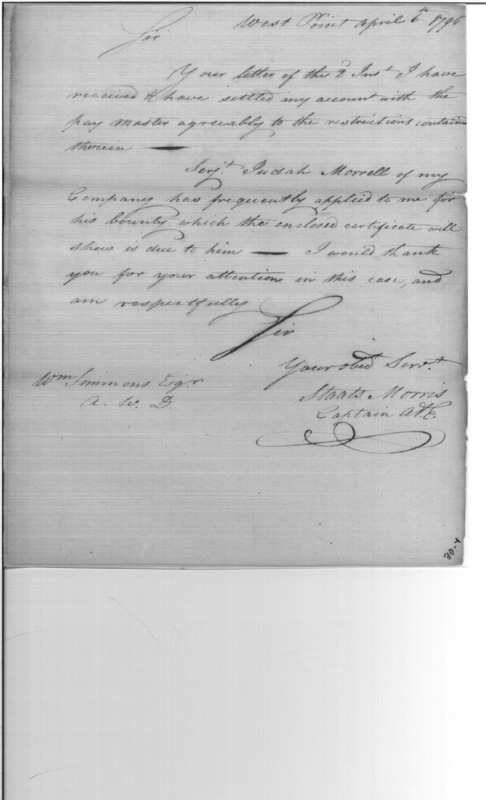 West Point April 6th 1796
Sir
Your letter of the 2 Inst. I have
received & have settled my account with the
pay master agreeably to the restrictions contained
therein —
Serjt. Judah Morrell of my
Company has frequently applied to me for
his bounty which the enclosed certificate will
shew is due to him — I would thank
you for your attention in this case, and
am respectfully
Sir
Your obed Servt.
Wm Simmons Esqr
Staats Morris
A. W. D
Captain A&E
30-4